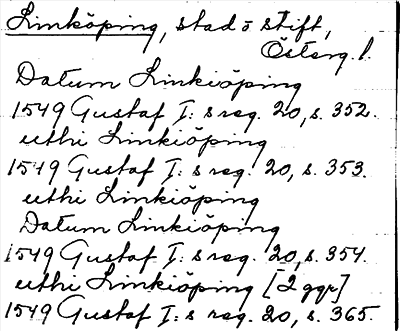 Linköping, stad o stift,
Österg. l.
Datum Linkiöping
1549 Gustaf I:s reg. 20, s. 352.
uthi Linkiöping
1549 Gustaf I:s reg. 20, s. 353.
uthi Linkiöping
Datum Linkiöping
1549 Gustaf I:s reg. 20, s. 354.
uthi Linkiöping [2 ggr]
1549 Gustaf I:s reg. 20, s. 365.